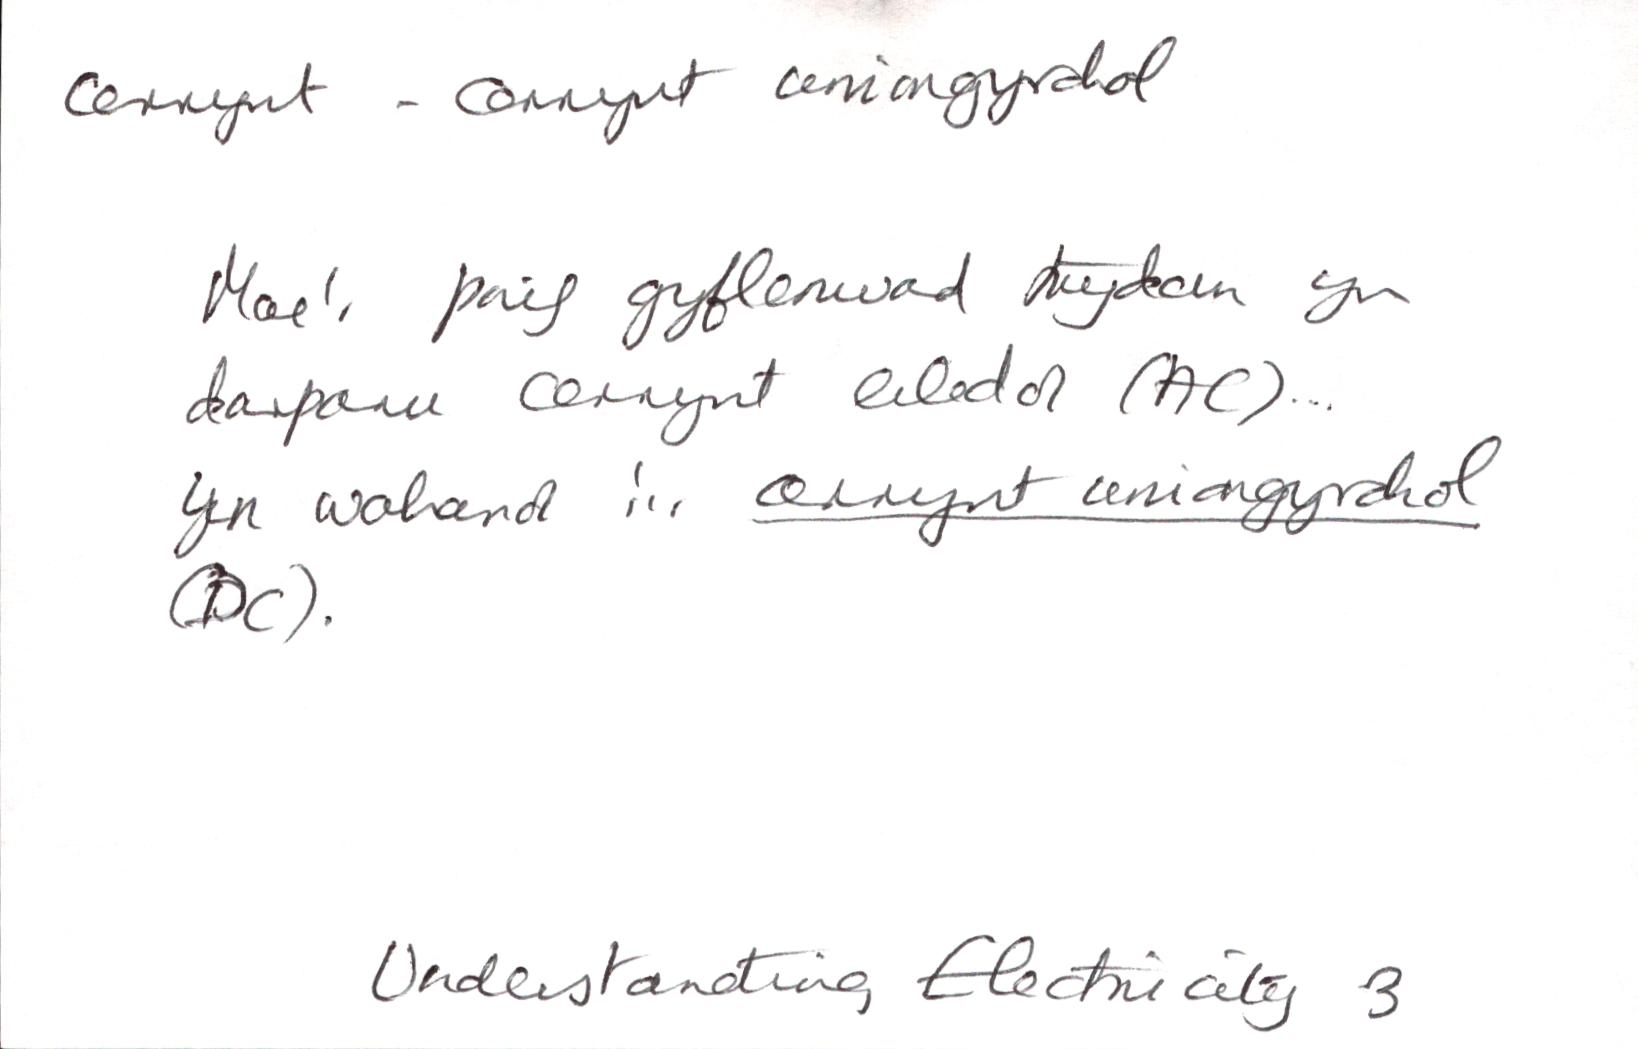 cerrynt - cerrynt uniongyrchol
Mae'r prif gyflenwad trydan yn
darparu cerrynt eiledol (AC)...
yn wahanol i'r cerrynt uniongyrchol
(DC).
Understanding Electricity 3